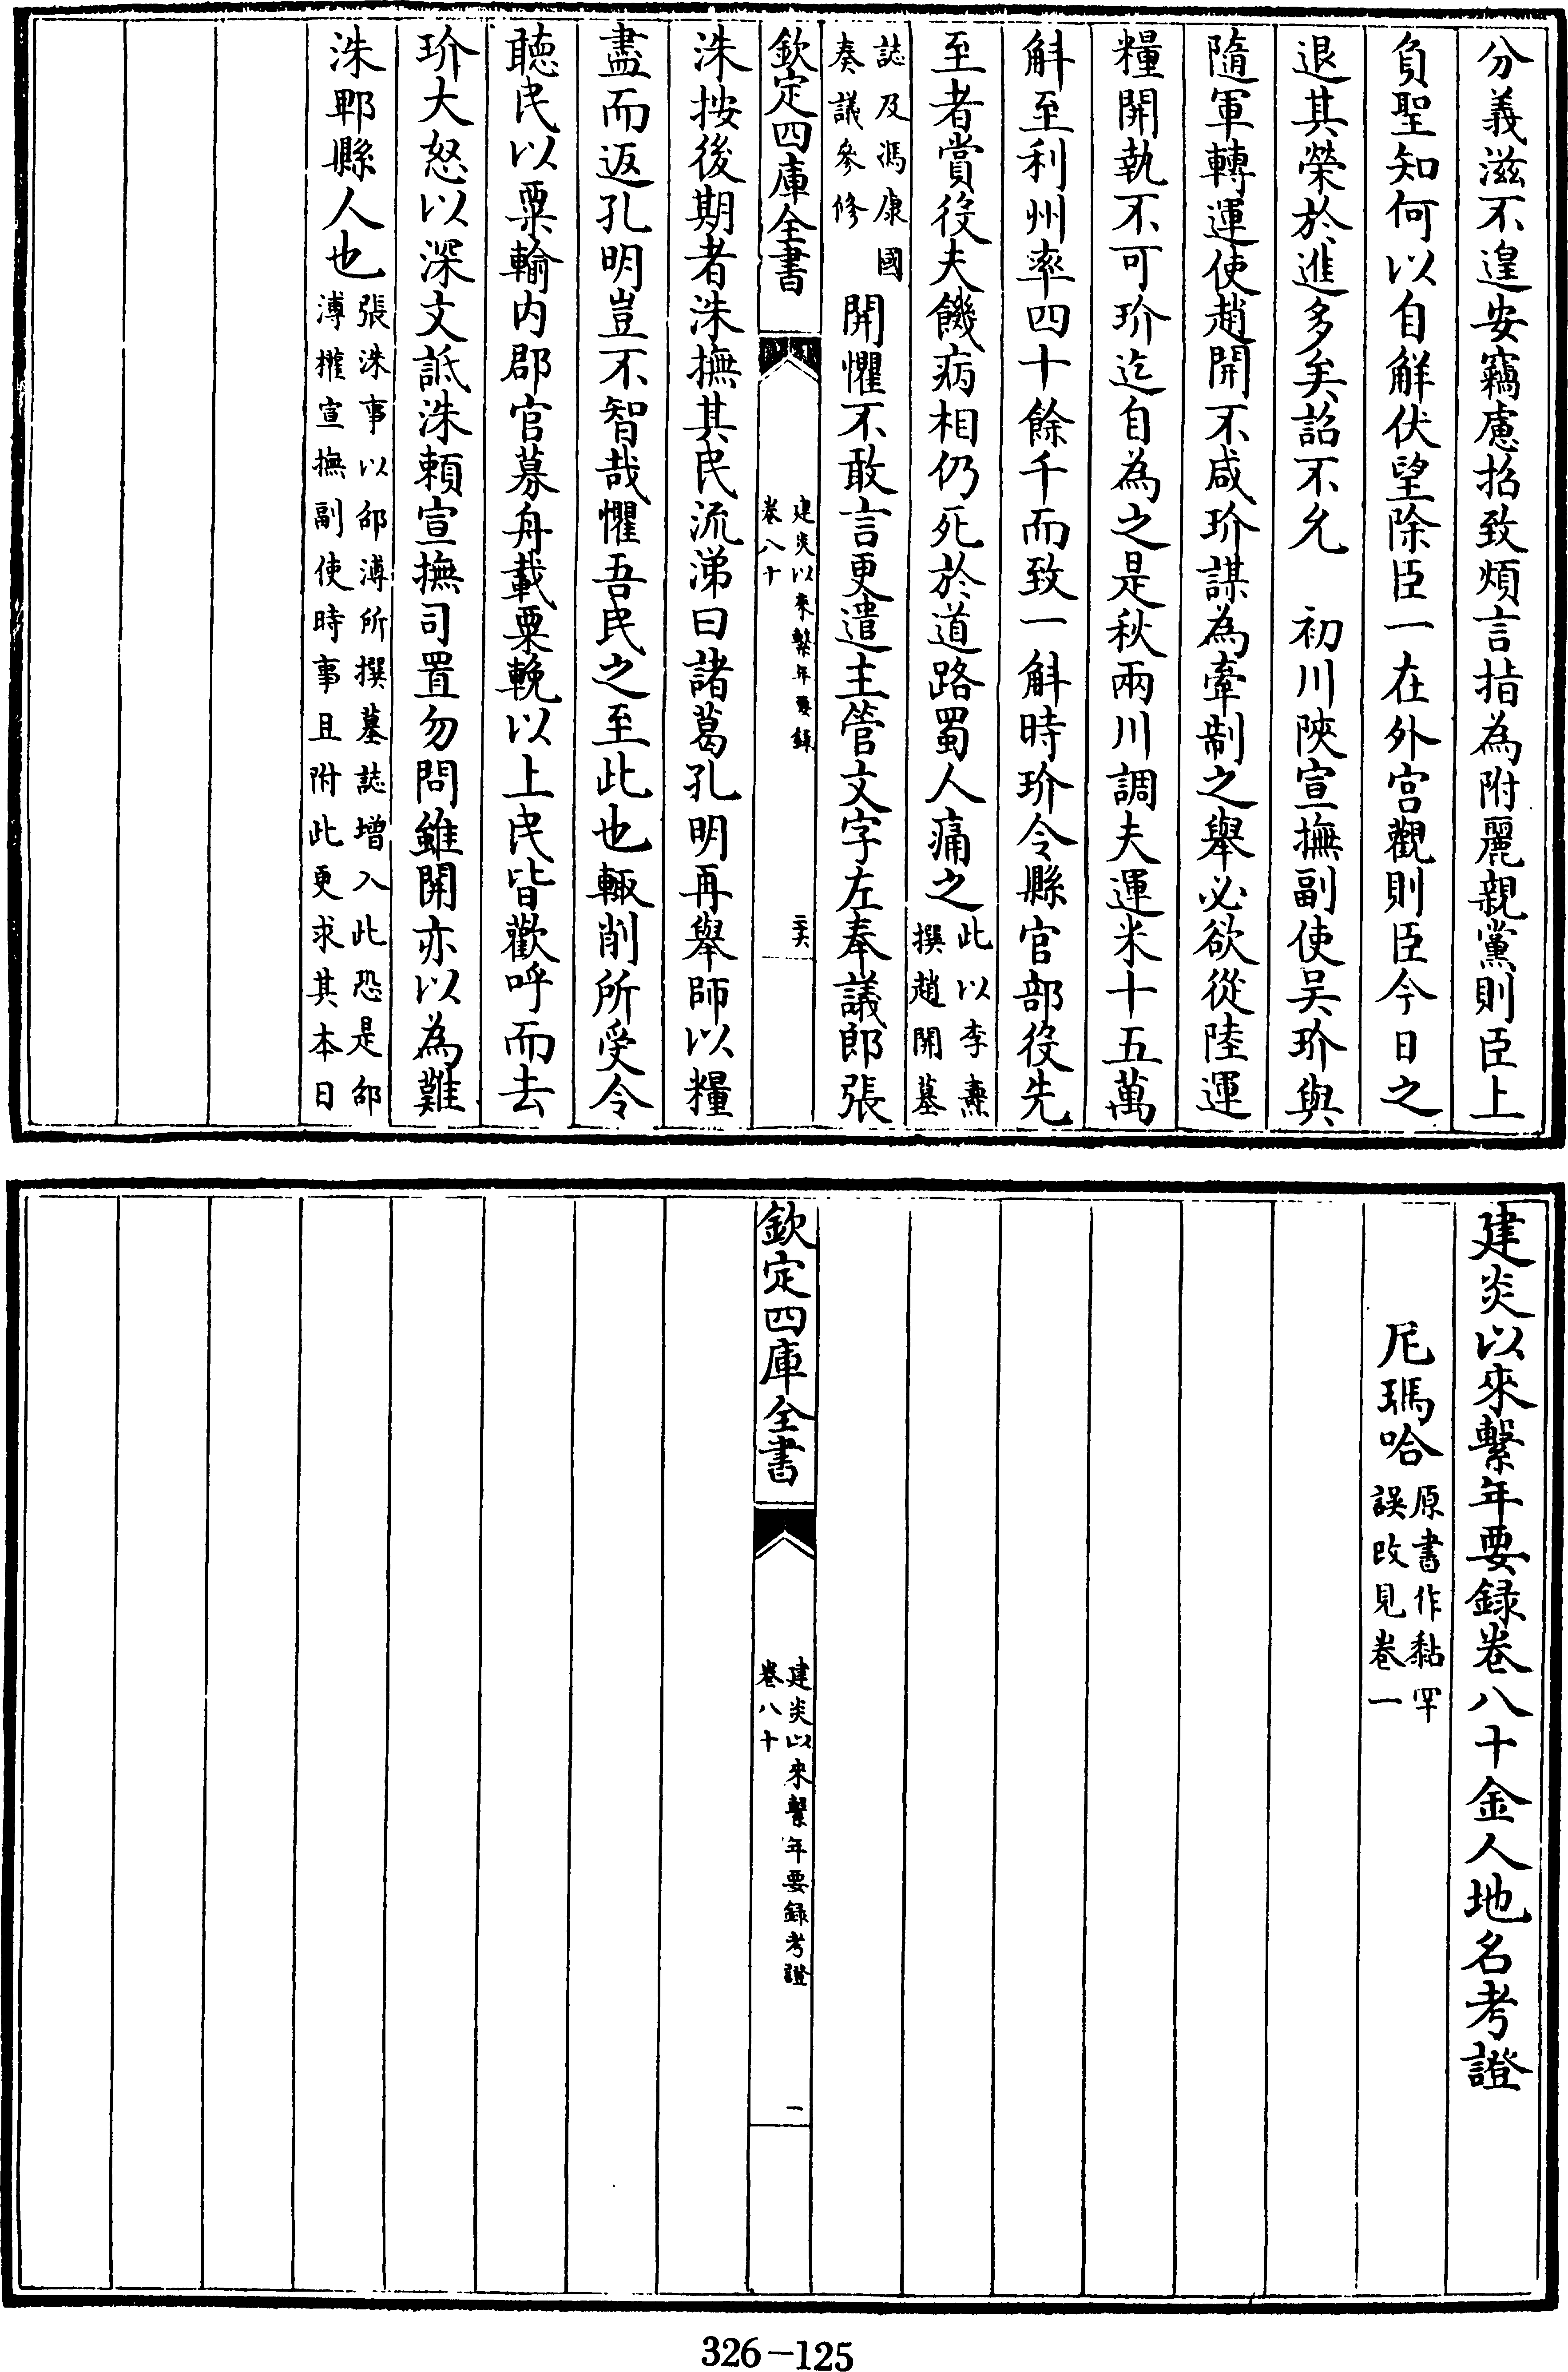 分義滋不遑安竊慮招致煩言指為附麗親黨則臣上
負聖知何以自解伏望除臣一在外宮觀則臣今日之
退其榮於進多矣詔不允　初川陝宣撫副使吴玠與
隨軍轉運使趙開不咸玠謀為牽制之舉必欲從陸運
糧開執不可玠迄自為之是秋兩川調夫運米十五萬
斛至利州率四十餘千而致一斛時玠令縣官部役先
至者賞役夫饑病相仍死於道路蜀人痛之此以李燾
撰趙開墓
誌及馮康國
奏議參修
開懼不敢言更遣主管文字左奉議郎張
欽定四庫全書
建炎以來繫年要録
卷八十
六
洙按後期者洙撫其民流涕曰諸葛孔明再舉師以糧
盡而返孔明豈不智哉懼吾民之至此也輒削所受令
聽民以粟輸内郡官募舟載粟輓以上民皆歡呼而去
玠大怒以深文詆洙頼宣撫司置勿問雖開亦以為難
洙郫縣人也張洙事以邵溥所撰墓誌增入此恐是邵
溥權宣撫副使時事且附此更求其本日
建炎以來繫年要録卷八十金人地名考證
尼瑪哈原書作黏罕
誤改見卷一
欽定四庫全書
建炎以來繫年要録考證
卷八十
一
326-125